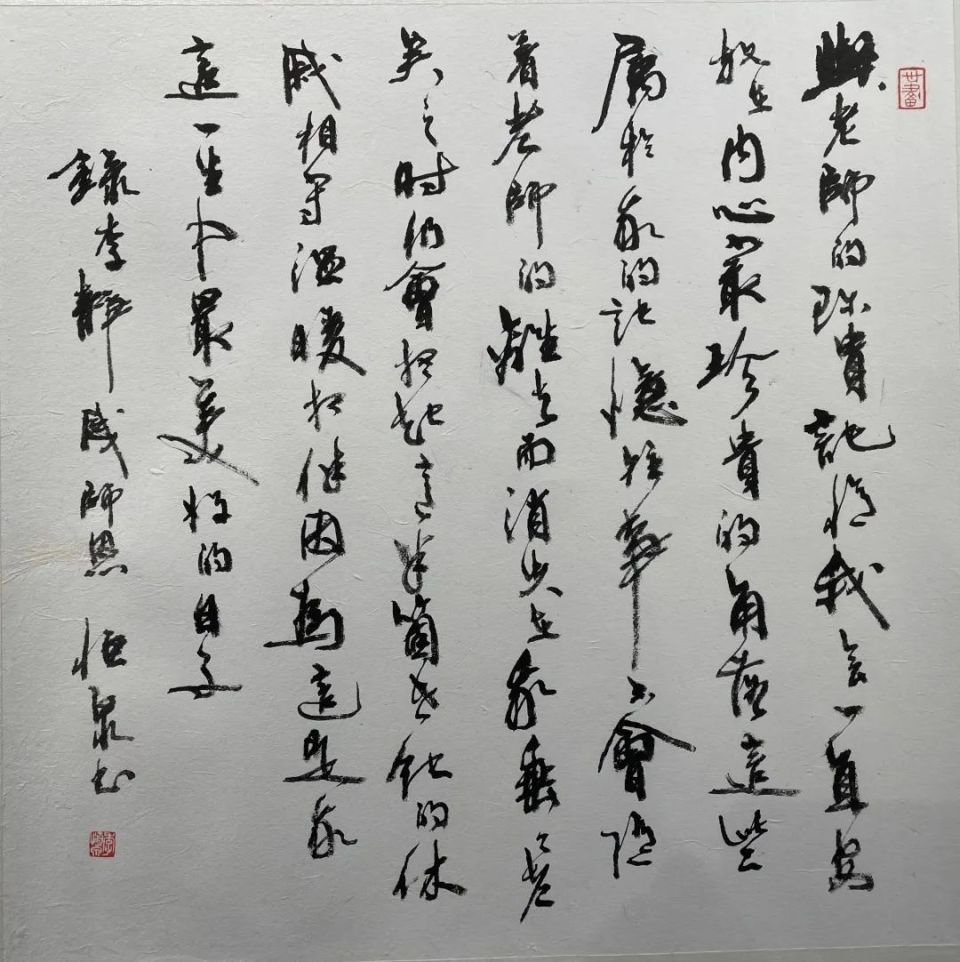 與老師的珍貴記憶我會一直安
放在内心最珍貴的角落這些
屬於我的記憶短暫不會隨
着老師的離去而消失在我垂垂老
矣之时仍會想起這半箇世紀的休
戚相守溫暖相伴因為這是我
這一生中最美好的日子
錄李靜感師恩 恒泉书